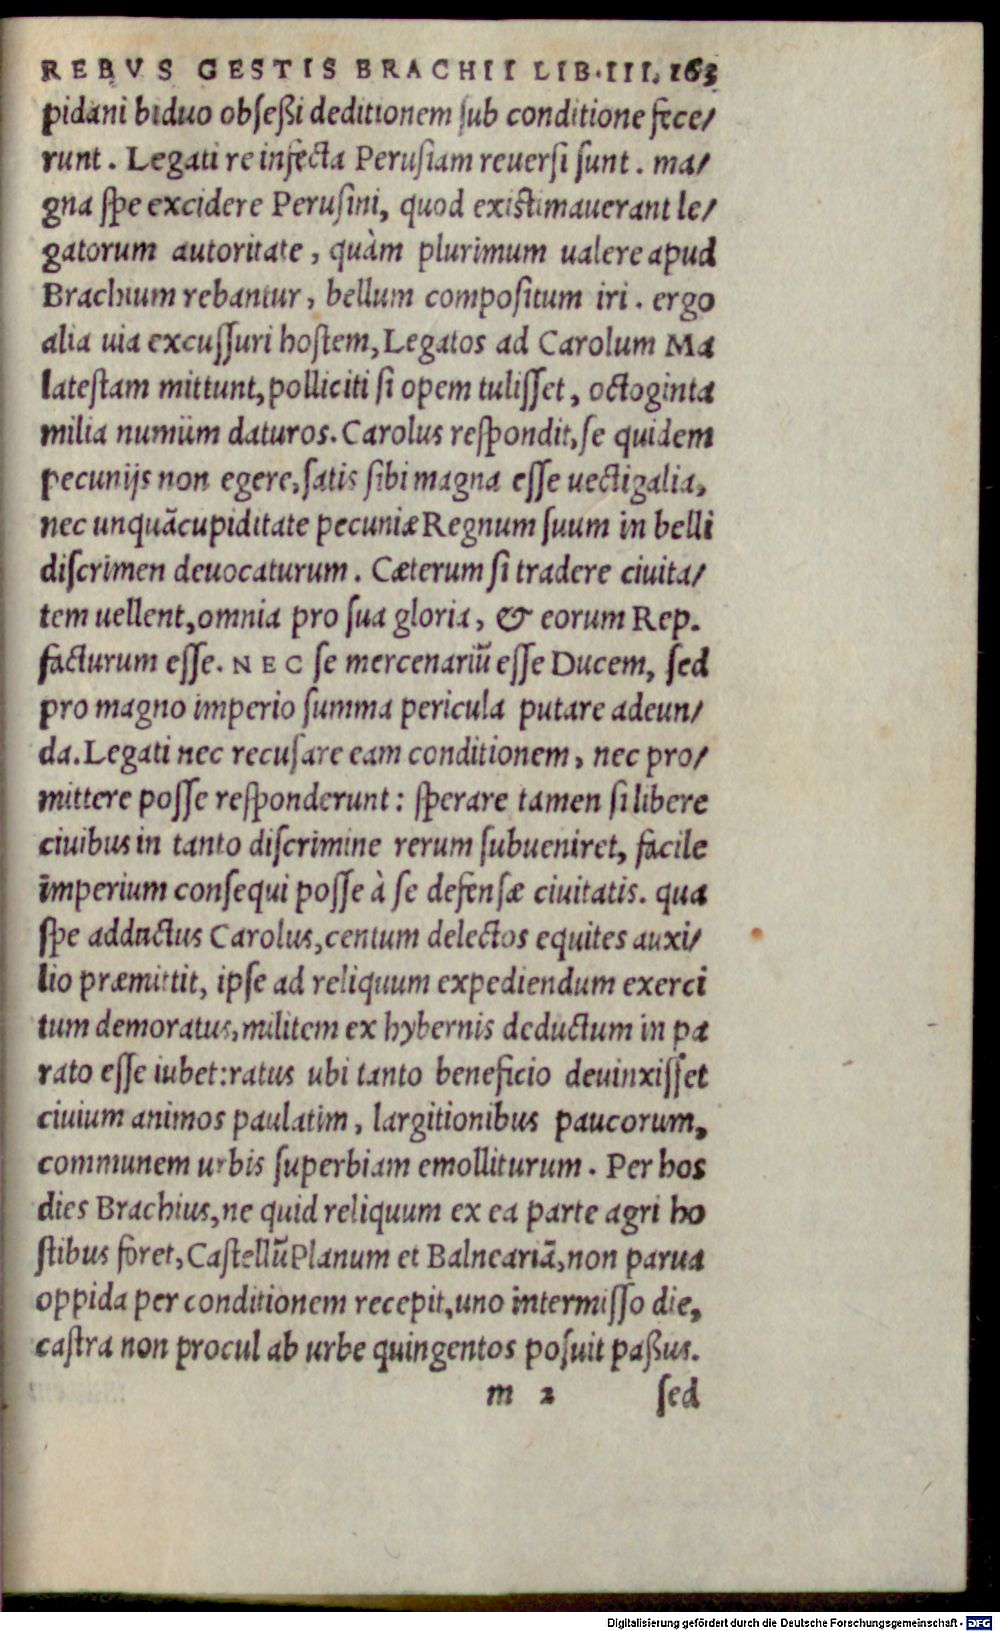 REBVS GESTIS BRACHII LIB.III. 163
pidani biduo obseßi deditionem sub conditione fece/
runt. Legati re infecta Perusiam reuersi sunt. ma/
gna spe excidere Perusini, quod existimauerant le/
gatorum autoritate, quàm plurimum ualere apud
Brachium rebantur, bellum compositum iri. ergo
alia uia excussuri hostem, Legatos ad Carolum Ma
latestam mittunt, polliciti si opem tulisset, octoginta
milia numûm daturos. Carolus respondit, se quidem
pecunijs non egere, satis sibi magna esse uectigalia,
nec unquã cupiditate pecuniæ Regnum suum in belli
discrimen deuocaturum. Cæterum si tradere ciuita/
tem uellent, omnia pro sua gloria, & eorum Rep.
facturum esse. NEC se mercenariũ esse Ducem, sed
pro magno imperio summa pericula putare adeun/
da. Legati nec recusare eam conditionem, nec pro/
mittere posse responderunt: sperare tamen si libere
ciuibus in tanto discrimine rerum subueniret, facile
imperium consequi posse à se defensæ ciuitatis. qua
spe adductus Carolus, centum delectos equites auxi/
lio præmittit, ipse ad reliquum expediendum exerci
tum demoratus, militem ex hybernis deductum in pa
rato esse iubet: ratus ubi tanto beneficio deuinxisset
ciuium animos paulatim, largitionibus paucorum,
communem urbis superbiam emolliturum. Per hos
dies Brachius, ne quid reliquum ex ea parte agri ho
stibus foret, Castellũ Planum et Balneariã, non parua
oppida per conditionem recepit, uno intermisso die,
castra non procul ab urbe quingentos posuit paßus.
m 2 sed
Digitalisierung gefördert durch die Deutsche Forschungsgemeinschaft - DFG